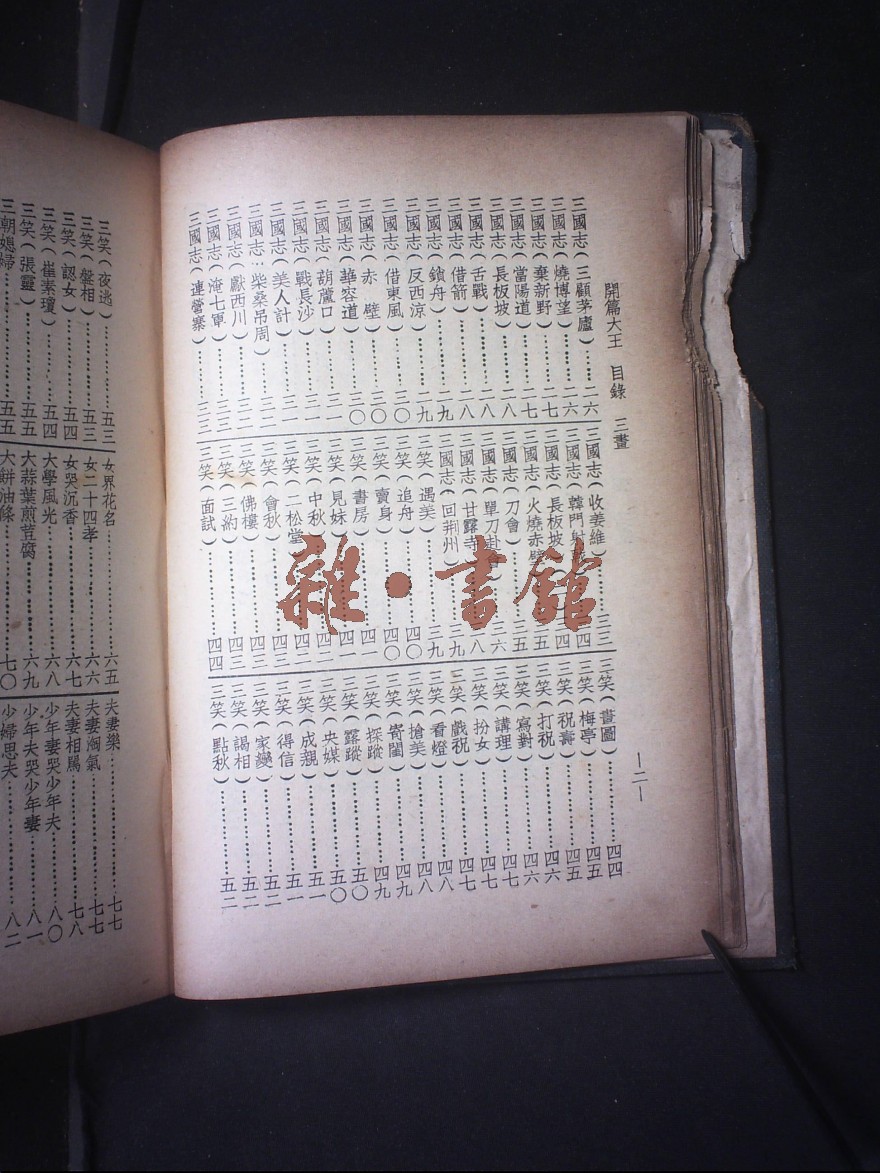 開篇大王 目錄 三畫 —二—
三國志(三顧茅廬)……二六
三國志(燒博望)……二六
三國志(棄新野)……二七
三國志(當陽道)……二七
三國志(長板坡)……二八
三國志(舌戰)……二八
三國志(借箭)……二八
三國志(鎖舟)……二九
三國志(反西涼)……二九
三國志(借東風)……三〇
三國志(赤 壁)……三〇
三國志(華容道)……三〇
三國志(葫蘆口)……三一
三國志(戰長沙)……三一
三國志(美人計)……三二
三國志(柴桑吊周)……三二
三國志(獻西川)……三二
三國志(淹七軍)……三三
三國志(連營寨)……三三
三國志(收姜維)……三三
三國志(韓門射……四
三國志(長板坡……四
三國志(火燒赤壁……五
三國志(刀會)……三五
三國志(單刀赴……六
三國志(甘露寺……八
三國志(回荊州)……三九
三笑(遇美)……三九
三笑(追舟)……四〇
三笑(賣身)……四〇
三笑(書房)……四一
三笑(見妹)……四一
三笑(中秋)……四二
三笑(二松堂)……四二
三笑(會秋)……四三
三笑(佛樓)……四三
三笑(三約)……四三
三笑(面試)……四四
三笑(畫圖)……四四
三笑(梅亭)……四五
三笑(祝壽)……四五
三笑(打祝)……四六
三笑(寫對)……四六
三笑(講理)……四七
三笑(扮女)……四七
三笑(戲祝)……四七
三笑(看燈)……四八
三笑(搶美)……四八
三笑(寄閨)……四九
三笑(探蹤)……四九
三笑(露蹤)……五〇
三笑(央媒)……五〇
三笑(成親)……五一
三笑(得信)……五一
三笑(家變)……五二
三笑(謁相)……五二
三笑(點秋)……五二
三笑(夜逃)……五三
三笑(盤相)……五三
三笑(認女)……五四
三笑(崔素瓊)……五四
三笑(張靈)……五五
三朝媳婦……五五
女界花名……六五
女二十四孝……六六
女哭沉香……六七
大學風光……六八
大蒜葉煎荳腐……六九
大餅油條……七〇
夫妻樂……七七
夫妻淘氣……七七
夫妻相罵……七八
少年妻哭少年夫……八〇
少年夫哭少年妻……八一
少婦思夫……八二
雜·書館